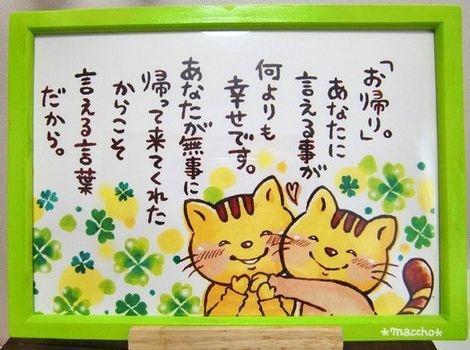 「お帰り。」
あなたに
言える事が
何よりも
幸せです。
あなたが無事に
帰って来てくれた
からこそ
言える言葉
だから。
*maccho*